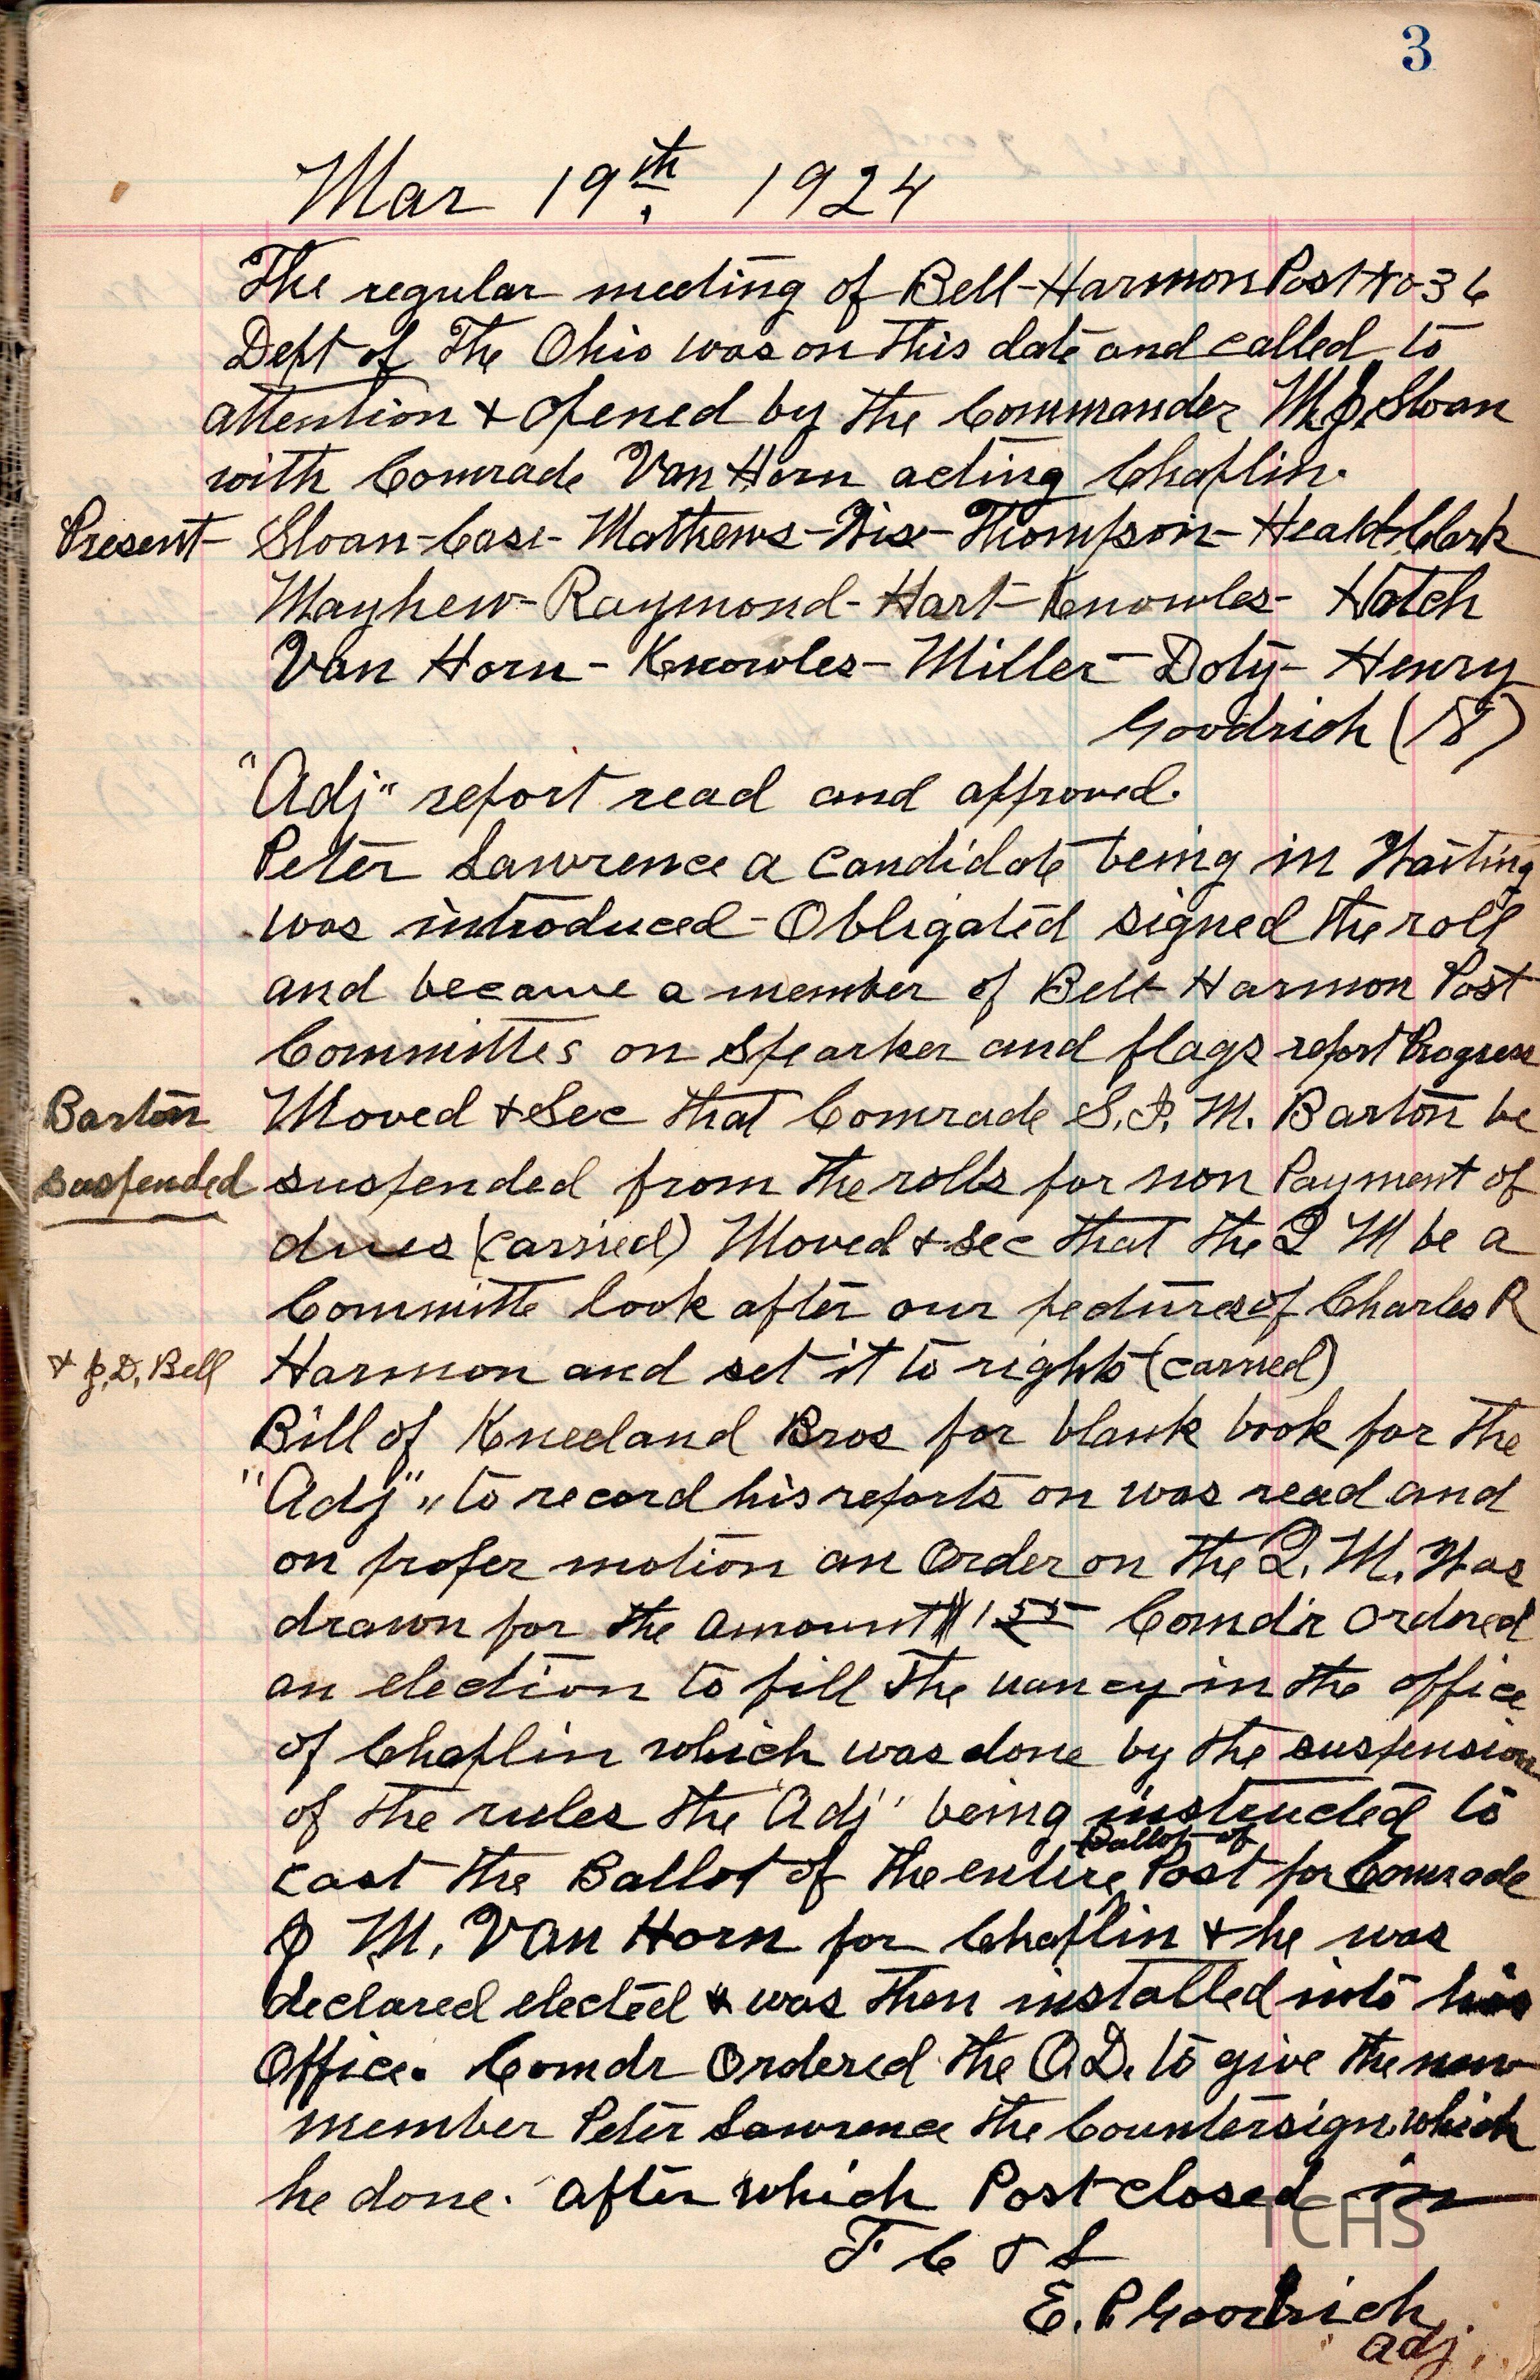 3
Mar 19th. 1924
The regular meeting of Bell-Harmon Post No 36
Dept of The Ohio was on this date and called to
attention & opened by the Commander M. J. Sloan
with Comrade Van Horn acting Chaplin.
Present - Sloan - Case - Mathews - Wise - Thompson - Heald - Clark
Mayhew - Raymond - Hart - Knowles - Hatch
Van Horn - Knowles - Miller - Doty - Henry
Goodrich (18)
"Adj" report read and approved.
Peter Lawrence a candidate being in Waiting
was introduced - Obligated signed the roll
and became a member of Bell Harmon Post
Committes on Spearker and flags report Progress
Barton Moved & Sec that Comrade S. M. Barton be
suspended suspended from the rolls for non Payment of
dues (carried) Moved & Sec that the Q M be a
Committe look after our pectures of Charles R
& J. D. Bell Harmon and set it to rights (carried)
Bill of Kneeland Bros for blank book for the
"Adj" to record his reports on was read and
on proper motion an Order on the Q. M. Was
drawn for the amount $1 55 Comd'r ordered
an election to fill the vancy in the office
of Chaplin which was done by the suspension
of the rules the 'Adj' being instructed to
Ballot of
cast the Ballot of the entire Post for Comrade
J M. Van Horn for Chaplin & he was
declared elected & was then installed into his
Office. Comdr Ordered the O.D. to give the new
member Peter Lawrence the Countersign which
he done. After which Post closed in
F C & L
E. P. Goodrich
Adj.
ICHS